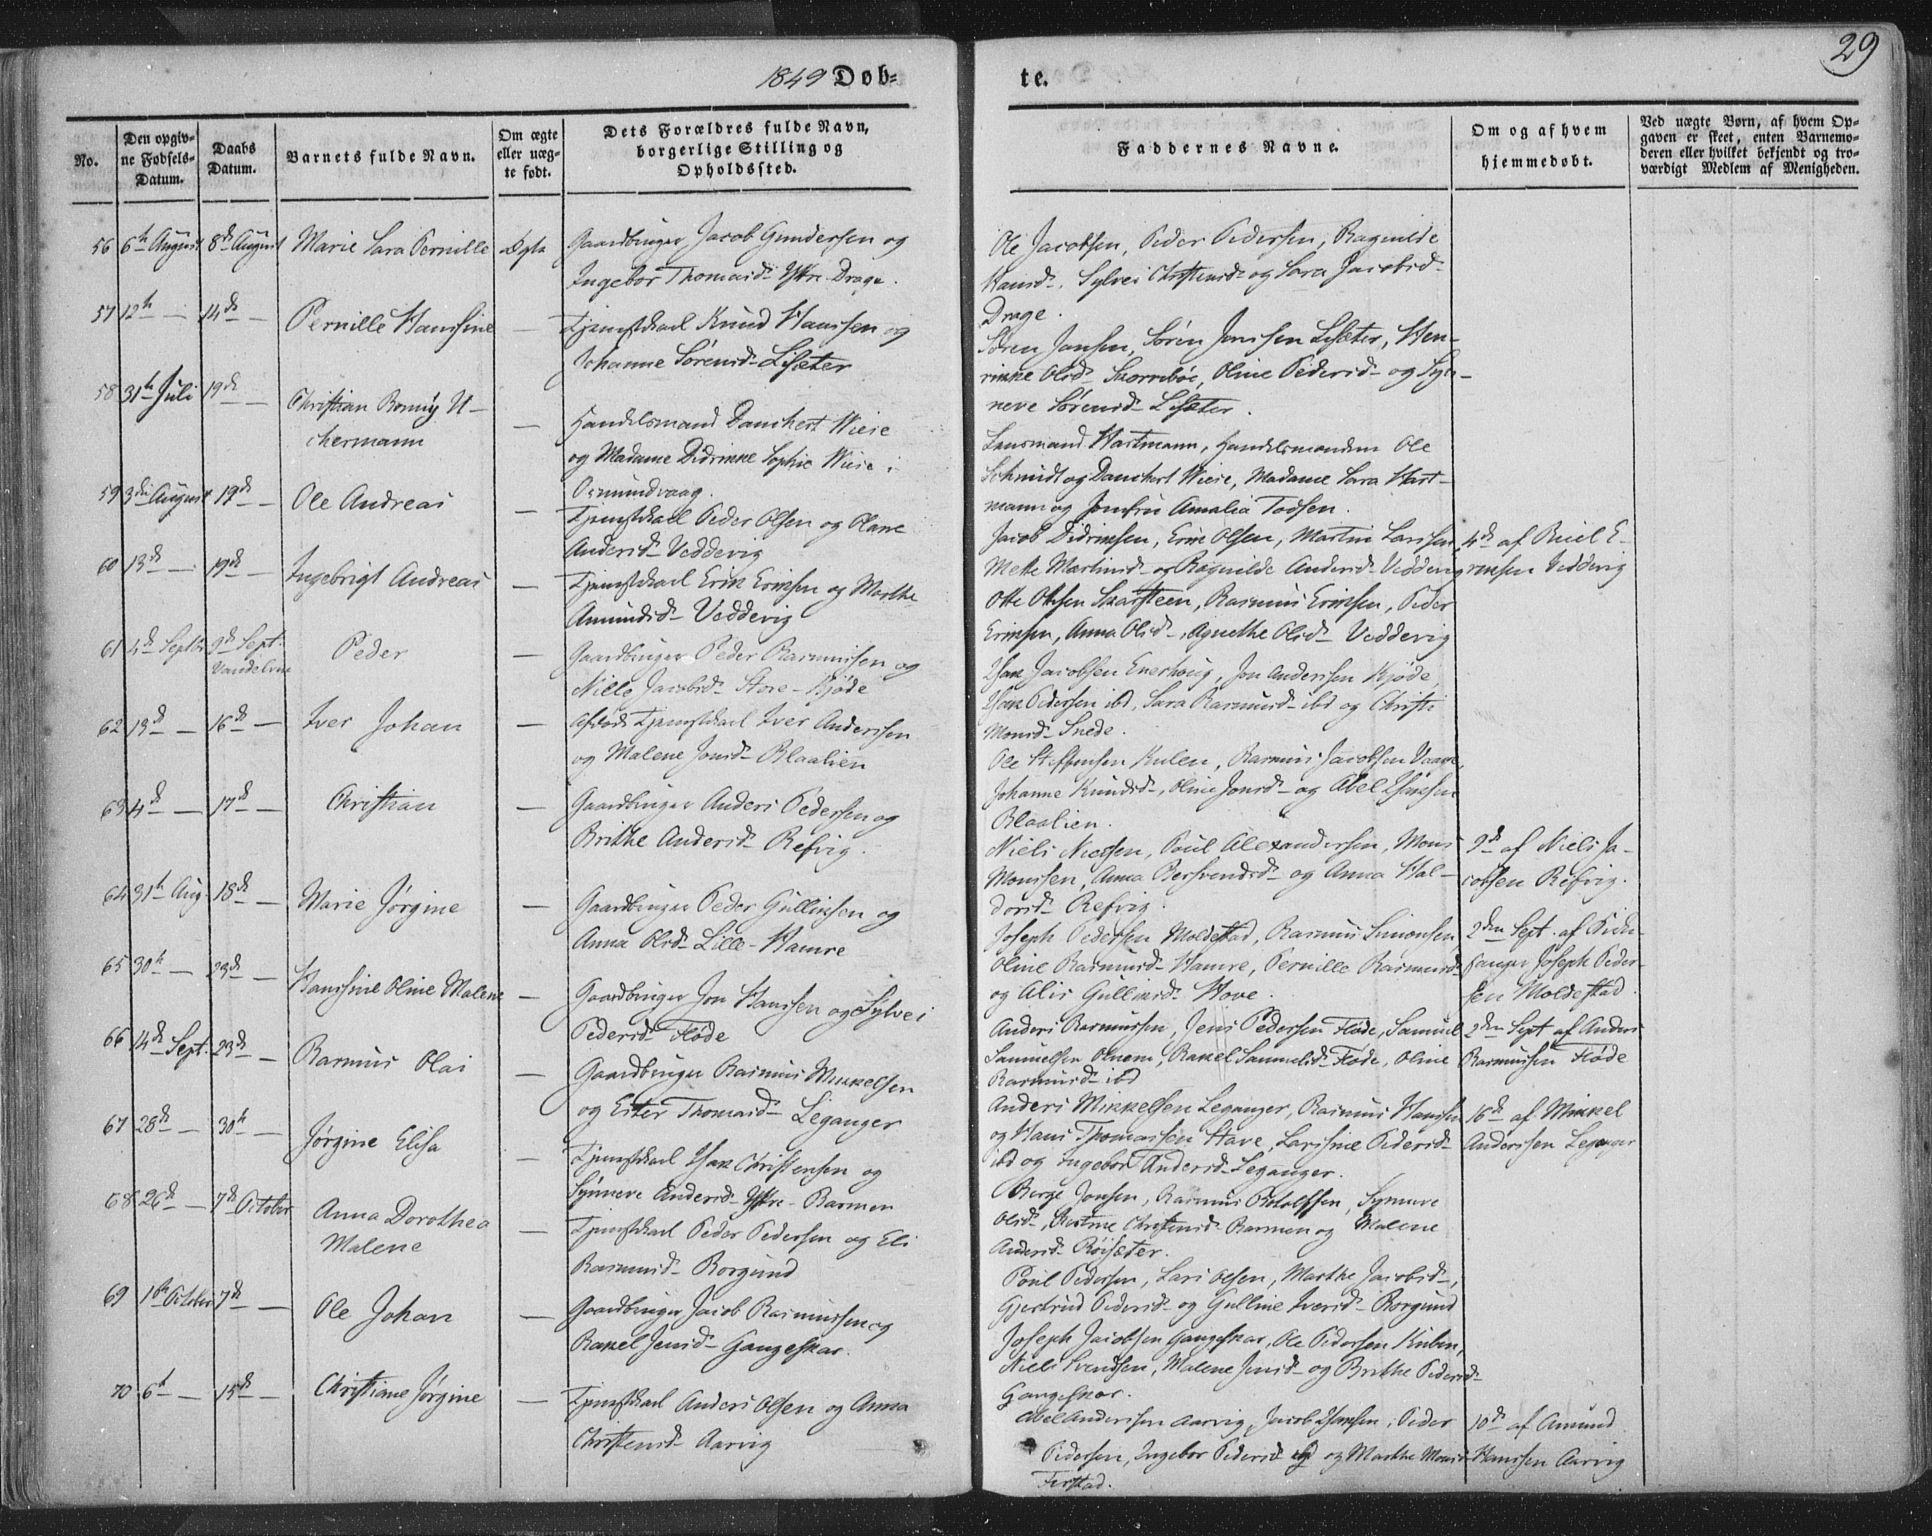 1849 Døb=
te.
29
No.
Den opgiv=
ne Fødsels=
Datum.
Daabs
Datum.
Barnets fulde Navn.
Om ægte
eller uæg=
te født.
Dets Forældres fulde Navn,
borgerlige Stilling og
Opholdssted.
Faddernes Navne.
Om og af hvem
hjemmedøbt.
Ved uægte Børn, af hvem Op=
gaven er skeet, enten Barnemo=
deren eller hvilket bekjendt og tro=
værdigt Medlem af Menigheden.
56 6th August 8de August Marie Sara Pernille Ægte Gaardbruger Jacob Gundersen og
Ingebor Thomasd. Ytre Drage.
Ole Jacobsen, Peder Pedersen, Ragnilde
Hansd. Sylvei Christensd og Sara Jacobsd.
Drage.
57 12th — 14de — Pernille Hansine — Tjenestkarl Knud Hanssen og
Johanne Sørensd. Lisæter
Søren Jonsen, Søren Jonssen Lisæter, Hen-
rikke Olsd. Skorrebøe, Oline Pedersd. og Syn-
neve Sørensd. Lisæter.
58 31th Juli 19de — Christian Romüs U-
chermann
— Handelsmand Danchert Wiese
og Madame Didrikke Sophie Wiese i
Osmundvaag.
Lensmand Hartmann, Handelsmanden Ole
Schmidt og Danchert Wiese, Madame Sara Hart-
mann og Jomfru Amalia Todsen.
59 3die August 19de — Ole Andreas — Tjenestkarl Peder Olsen og Olave
Andersd. Veddevig
Jacob Didriksen, Erik Olsen, Martin Larssen
Mette Martinsd. og Ragnilde Andersd. Veddevig
4de af Poul E-
riksen Veddevig
60 13de — 19de — Ingebrigt Andreas — Tjenestkarl Erik Eriksen og Marthe
Amundsd. Veddevig
Otte Ottesen Skarsteen, Rasmus Eriksen, Peder
Eriksen, Anna Olsd., Agnethe Olsd. Veddevig
61 4de Septbr 9de Sept.
Vandelven
Peder — Gaardbruger Peder Rasmussen og
Nille Jacobsd. Store-Kjøde
Isak Jacobsen Enerhoug, Jon Anderssen Kjøde,
Isak Pedersen ibd, Sara Rasmusd. ibd og Christi
Monsd. Snede.
62 13de — 16de — Iver Johan — Afdøde Tjenestkarl Iver Anderssen
og Malene Jonsd. Blaalien
Ole Steffensen Kulen, Rasmus Jacobsen Vaage,
Johanne Knudsd., Oline Jonsd. og Abel Isaksen
Blaalien.
63 4de — 17de — Christian — Gaardbruger Anders Pedersen og
Brithe Andersd. Refvig.
Niels Nielsen, Poul Alexandersen, Mons
Monssen, Anna Bersvendsd. og Anna Hal-
dorsd. Refvig.
9de af Niels Ja-
cobsen Refvig.
64 31th Aug. 18de — Marie Jørgine — Gaardbruger Peder Gulliksen og
Anna Olsd. Lille-Hamre
Joseph Pedersen Moldestad, Rasmus Simonsen
Oline Rasmusd. Hamre, Pernille Rasmusd.
og Alis Gulliksd. Hove.
2den Sept. af Kirke-
sanger Joseph Peder-
sen Moldestad.
65 30th — 23de — Hanssine Oline Malene — Gaardbruger Jon Hanssen og Sylvei
Pedersd. Fløde
Anders Rasmussen, Jens Pedersen Fløde, Samuel
Samuelsen, Rakel Samuelsd. Fløde, Oline
Rasmusd. ibd
2den Sept af Anders
Rasmussen Fløde
66 14de Sept. 23de — Rasmus Olai — Gaardbruger Rasmus Mikkelsen
og Ester Thomasd. Leganger
Anders Mikkelsen Leganger, Rasmus Hanssen
og Hans Thomassen Stave, Larsine Pedersd.
ibd og Ingebor Andersd. Leganger.
16de af Mikkel
Anderssen Leganger
67 28de — 30th — Jørgine Elisa — Tjenestkarl Isak Christensen og
Synneve Andersd. Ytre-Barmen
Børge Jonsen, Rasmus Botolfsen, Synneve
Olsd., Kirstine Christensd. Barmen og Malene
Andersd. Røisæter.
68 26de — 7de October Anna Dorothea
Malene
— Tjenestkarl Peder Pedersen og Eli
Rasmusd. Borgund
Poul Pedersen, Lars Olsen, Marthe Jacobsd.,
Gjertrud Pedersd. og Gulline Iversd. Borgund
69 1ste October 7de — Ole Johan — Gaardbruger Jacob Rasmussen og
Rakel Jensd. Gangeskar.
Joseph Jacobsen Gangeskar, Ole Pedersen Kuben,
Niels Svendsen, Malene Jensd. og Brithe Pedersd.
Gangeskar.
70 6t — 15de — Christiane Jørgine — Tjenestkarl Anders Olsen og Anna
Christensd. Aarvig
Abel Anderssen Aarvig, Jacob Isaksen, Peder
Pedersen, Ingebor Pedersd. ibd og Marthe Monsd.
Ferstad.
10de af Amund
Hanssen Aarvig